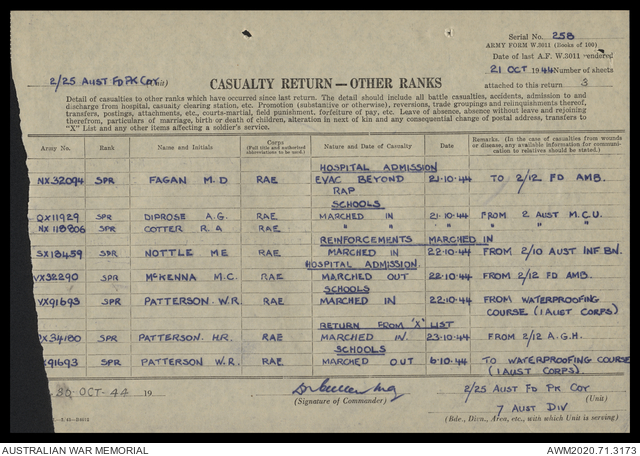 Serial No. 258
ARMY FORM W.3011 (Books of 100)
Date of last A.F. W.3011 rendered
21 OCT 1944 Number of sheets
attached to this return 3
2/25 AUST FD PK COY (Unit)
CASUALTY RETURN—OTHER RANKS
Detail of casualties to other ranks which have occurred since last return. The detail should include all battle casualties, accidents, admission to and
discharge from hospital, casualty clearing station, etc. Promotion (substantive or otherwise), reversions, trade groupings and relinquishments thereof,
transfers, postings, attachments, etc., courts-martial, field punishment, forfeiture of pay, etc. Leave of absence, absence without leave and rejoining
therefrom, particulars of marriage, birth or death of children, alteration in next of kin and any consequential change of postal address, transfers to
"X" List and any other items affecting a soldier's service.
Army No. Rank Name and Initials Corps (Full title and authorized abbreviations to be used.) Nature and Date of Casualty Date Remarks. (In the case of casualties from wounds or disease, any available information for communication to relatives should be stated.)
HOSPITAL ADMISSION
NX32094 SPR FAGAN M.D RAE EVAC BEYOND 21-10-44 TO 2/12 FD AMB.
RAP
SCHOOLS
QX11929 SPR DIPROSE A.G. RAE MARCHED IN 21-10-44 FROM 2 AUST M.C.U.
NX118806 SPR COTTER R.A RAE " " " "
REINFORCEMENTS MARCHED IN
SX18459 SPR NOTTLE M E RAE MARCHED IN 22-10-44 FROM 2/10 AUST INF BN.
HOSPITAL ADMISSION
VX32290 SPR McKENNA M.C. RAE MARCHED OUT 22-10-44 FROM 2/12 FD AMB.
SCHOOLS
VX91693 SPR PATTERSON. W.R. RAE MARCHED IN 22-10-44 FROM WATERPROOFING
COURSE (1 AUST CORPS)
RETURN FROM 'X' LIST
DX34180 SPR PATTERSON. H.R. RAE MARCHED IN. 23-10-44 FROM 2/12 A.G.H.
SCHOOLS
X91693 SPR PATTERSON W.R. RAE MARCHED OUT 6-10-44 TO WATERPROOFING COURSE
(1 AUST CORPS).
20 OCT 44 19
(Signature of Commander)
2/25 AUST FD PK COY
(Unit)
7 AUST DIV
(Bde., Divn., Area, etc., with which Unit is serving)
AUSTRALIAN WAR MEMORIAL AWM2020.71.3173